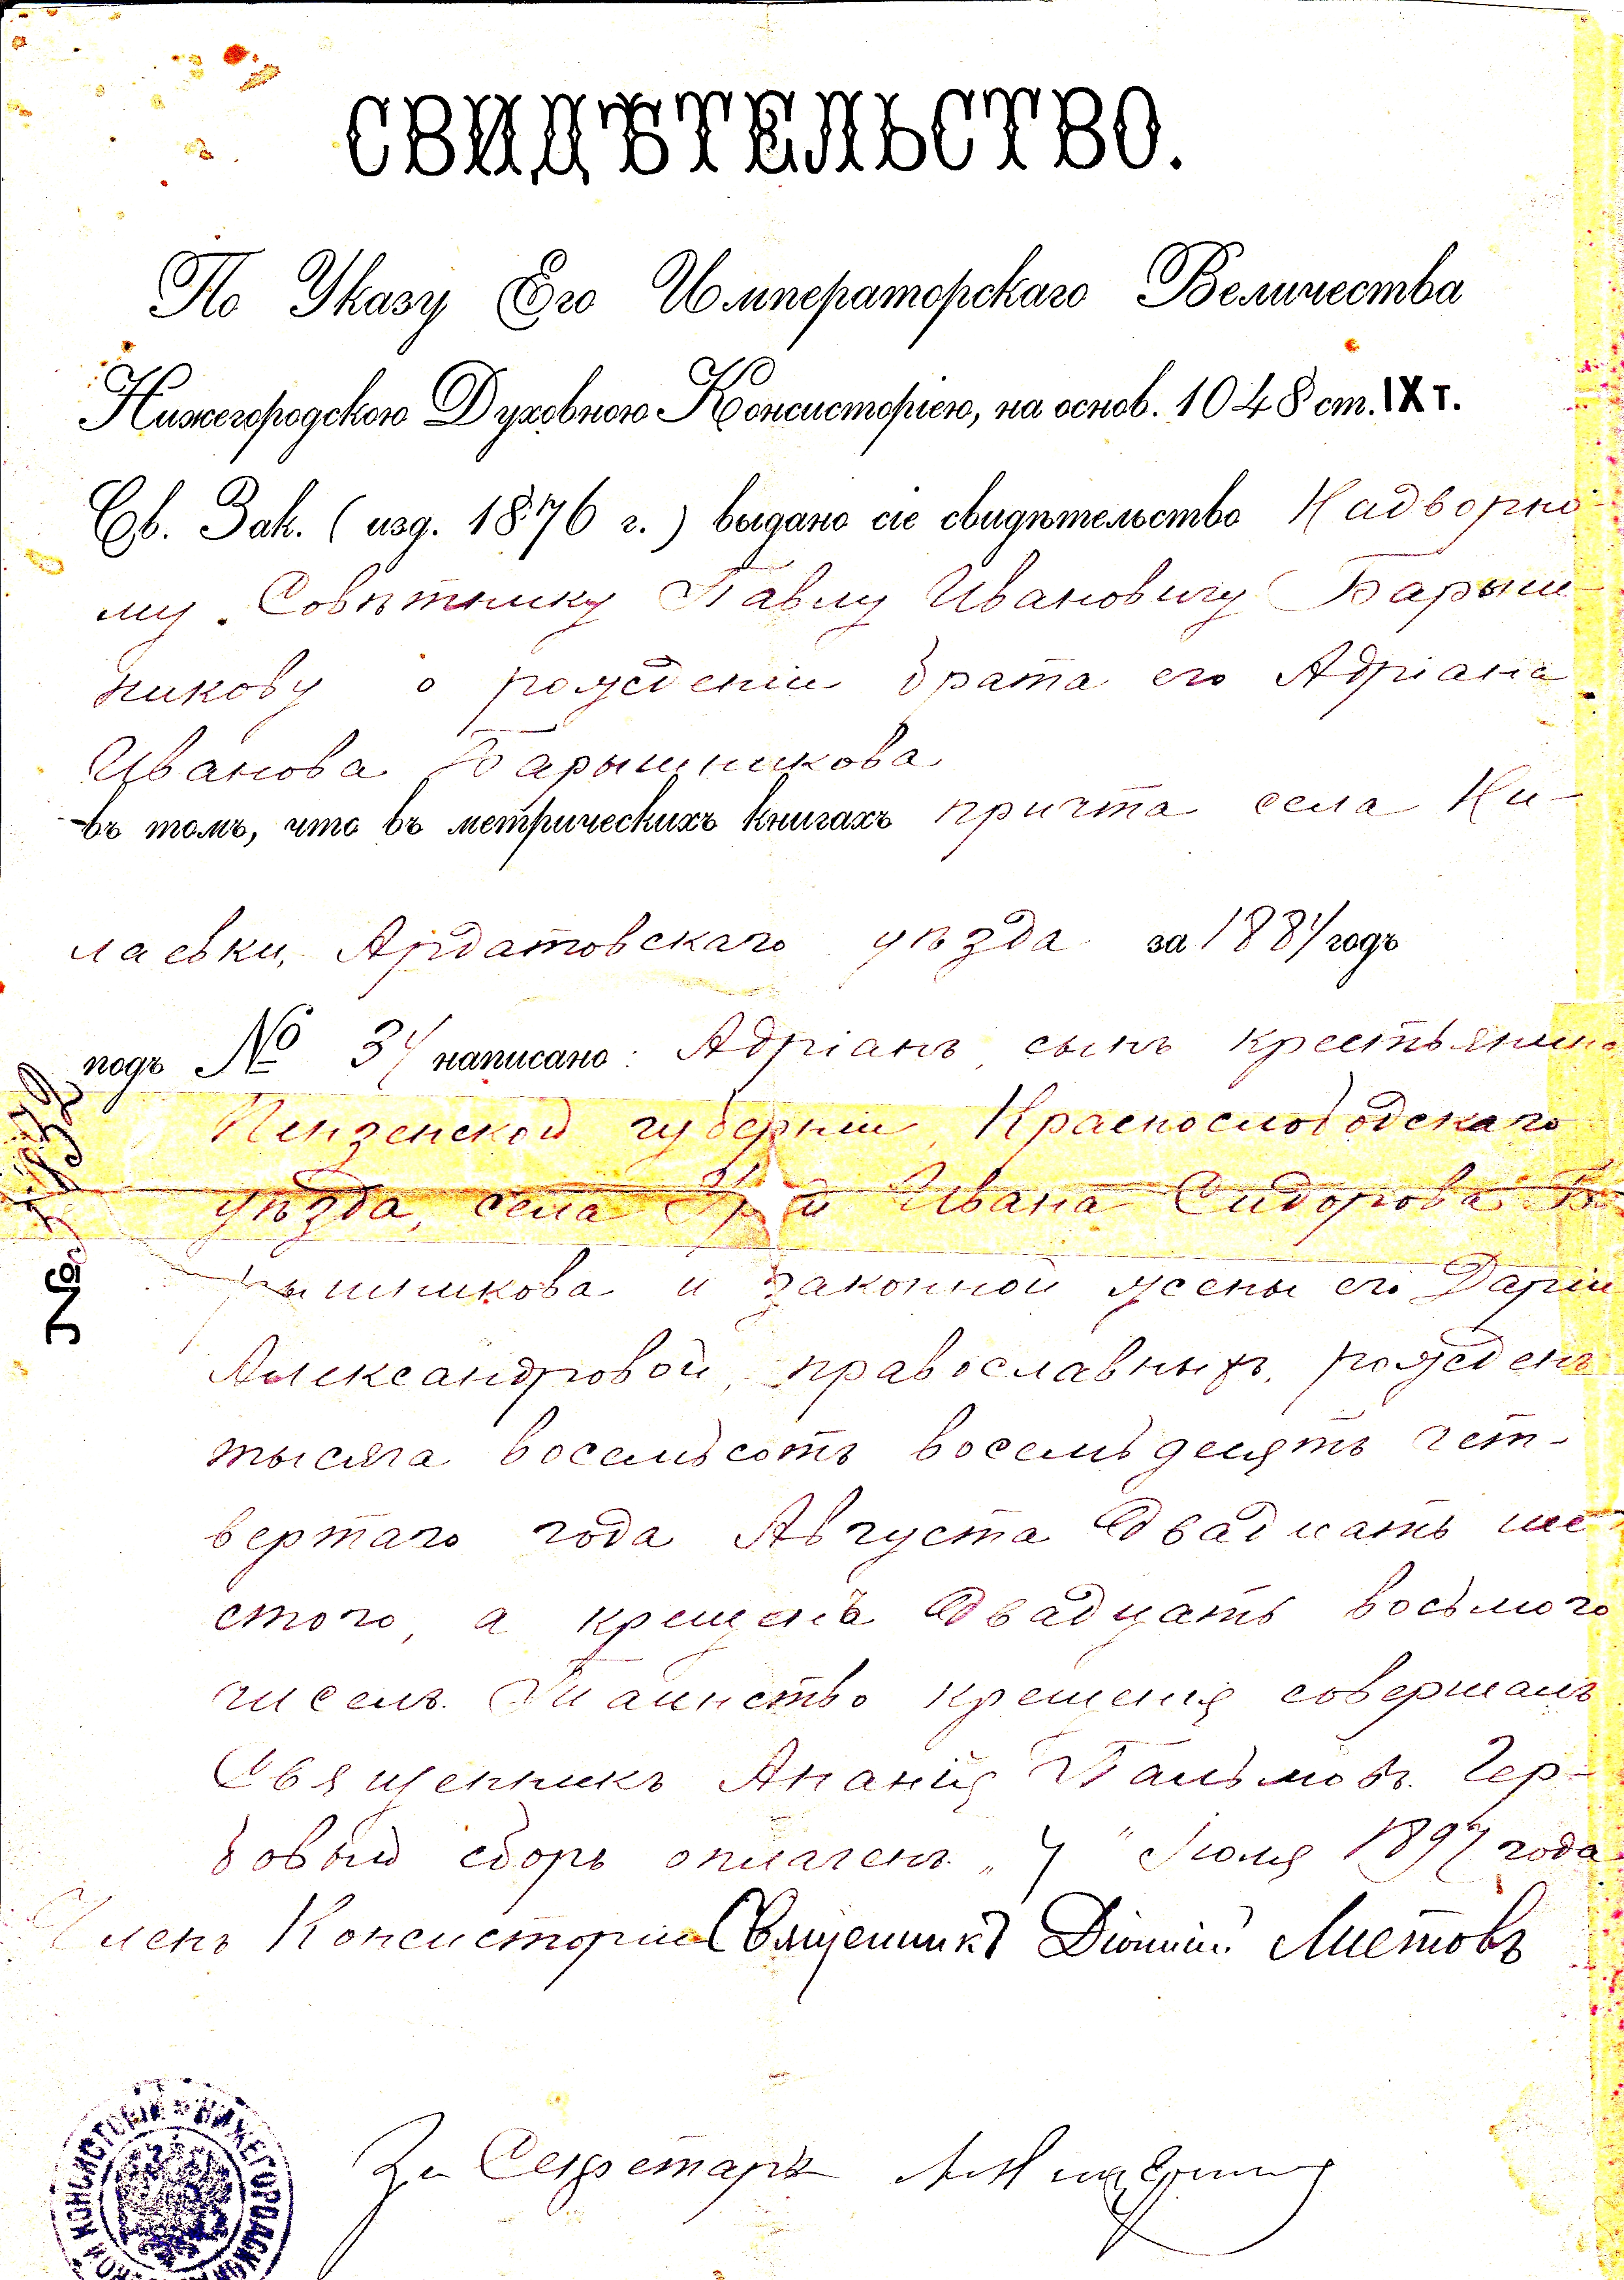 СВИДѢТЕЛЬСТВО.
По Указу Его Императорскаго Величества
Нижегородскою Духовною Консисторіею, на основ. 1048 ст. IX т.
Св. Зак. (изд. 1876 г.) выдано сіе свидѣтельство Надворно-
му Совѣтнику Павлу Ивановичу Барыш-
никову о рожденіи брата его Адріана
Иванова Барышникова
въ томъ, что въ метрическихъ книгахъ причта села Ни-
лаевки, Ардатовскаго уѣзда за 1884 годъ
подъ № 34 написано: Адріанъ, сынъ крестьянина
Пензенской губерніи, Краснослободскаго
уѣзда, села Ивана Сидорова Ба-
рышникова и законной жены его Даріи
Александровой, православныхъ, рожденъ
тысяча восемьсотъ восемьдесятъ чет-
вертаго года Августа двадцать ше-
стого, а крещенъ двадцать восьмого
чиселъ. Таинство крещенія совершалъ
Священникъ Ананій Пальмовъ. Гер-
бовый сборъ оплаченъ. „4" Іюля 1897 года
Членъ Консисторіи Священникъ Діонисій Листовъ
За Секретаря
№
НИЖЕГОРОДСКОЙ КОНСИСТОРІИ